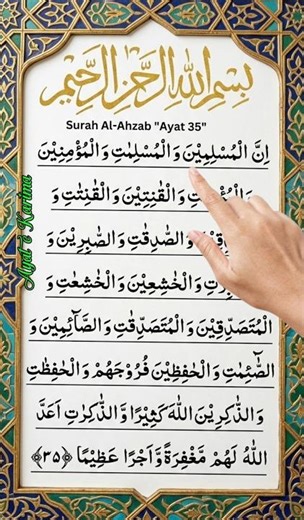 بِسْمِ اللهِ الرَّحْمٰنِ الرَّحِيْمِ
Surah Al-Ahzab "Ayat 35"
اِنَّ الْمُسْلِمِيْنَ وَ الْمُسْلِمٰتِ وَ الْمُؤْمِنِيْنَ
وَ الْقٰنِتِيْنَ وَ الْقٰنِتٰتِ وَ
وَ الصّٰدِقٰتِ وَ الصّٰبِرِيْنَ وَ
وَ الْخٰشِعِيْنَ وَ الْخٰشِعٰتِ وَ
الْمُتَصَدِّقِيْنَ وَ الْمُتَصَدِّقٰتِ وَ الصَّآئِمِيْنَ وَ
الصّٰٓئِمٰتِ وَ الْحٰفِظِيْنَ فُرُوْجَهُمْ وَ الْحٰفِظٰتِ
وَ الذّٰكِرِيْنَ اللّٰهَ كَثِيْرًا وَّ الذّٰكِرٰتِ اَعَدَّ
اللّٰهُ لَهُمْ مَّغْفِرَةً وَّ اَجْرًا عَظِيْمًا ﴿۳۵﴾
Ayat e Karima